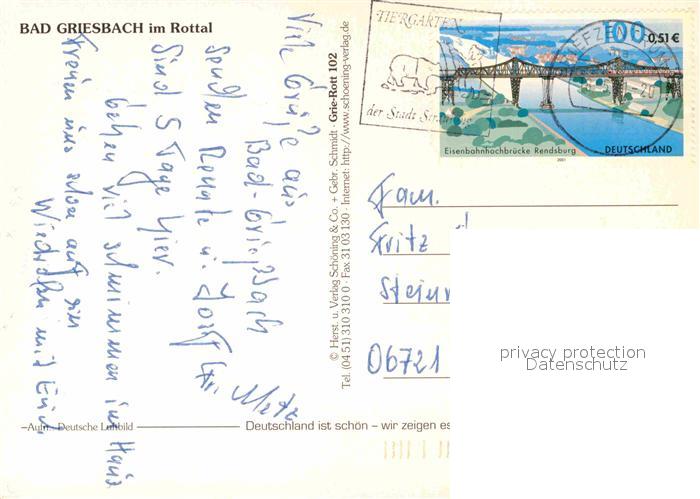 BAD GRIESBACH im Rottal
Viele Grüße aus
Bad-Grießbach
senden Renate u.
Metz
Sind 5 Tage hier.
Gehen viel schwimmen im Haus
Freuen uns schon auf ein
Wiedersehen mit Euch.
© Herst. u. Verlag Schöning & Co. + Gebr. Schmidt · Grie-Rott 102
Tel. (04 51) 310 310 0 · Fax 31 03 130 · Internet: http://www.schoening-verlag.de
TIERGARTEN
der Stadt
100
0,51 €
Eisenbahnhochbrücke Rendsburg
2001
DEUTSCHLAND
Fam.
Fritz
Stein
06721
privacy protection
Datenschutz
Aufn.: Deutsche Luftbild
Deutschland ist schön – wir zeigen es